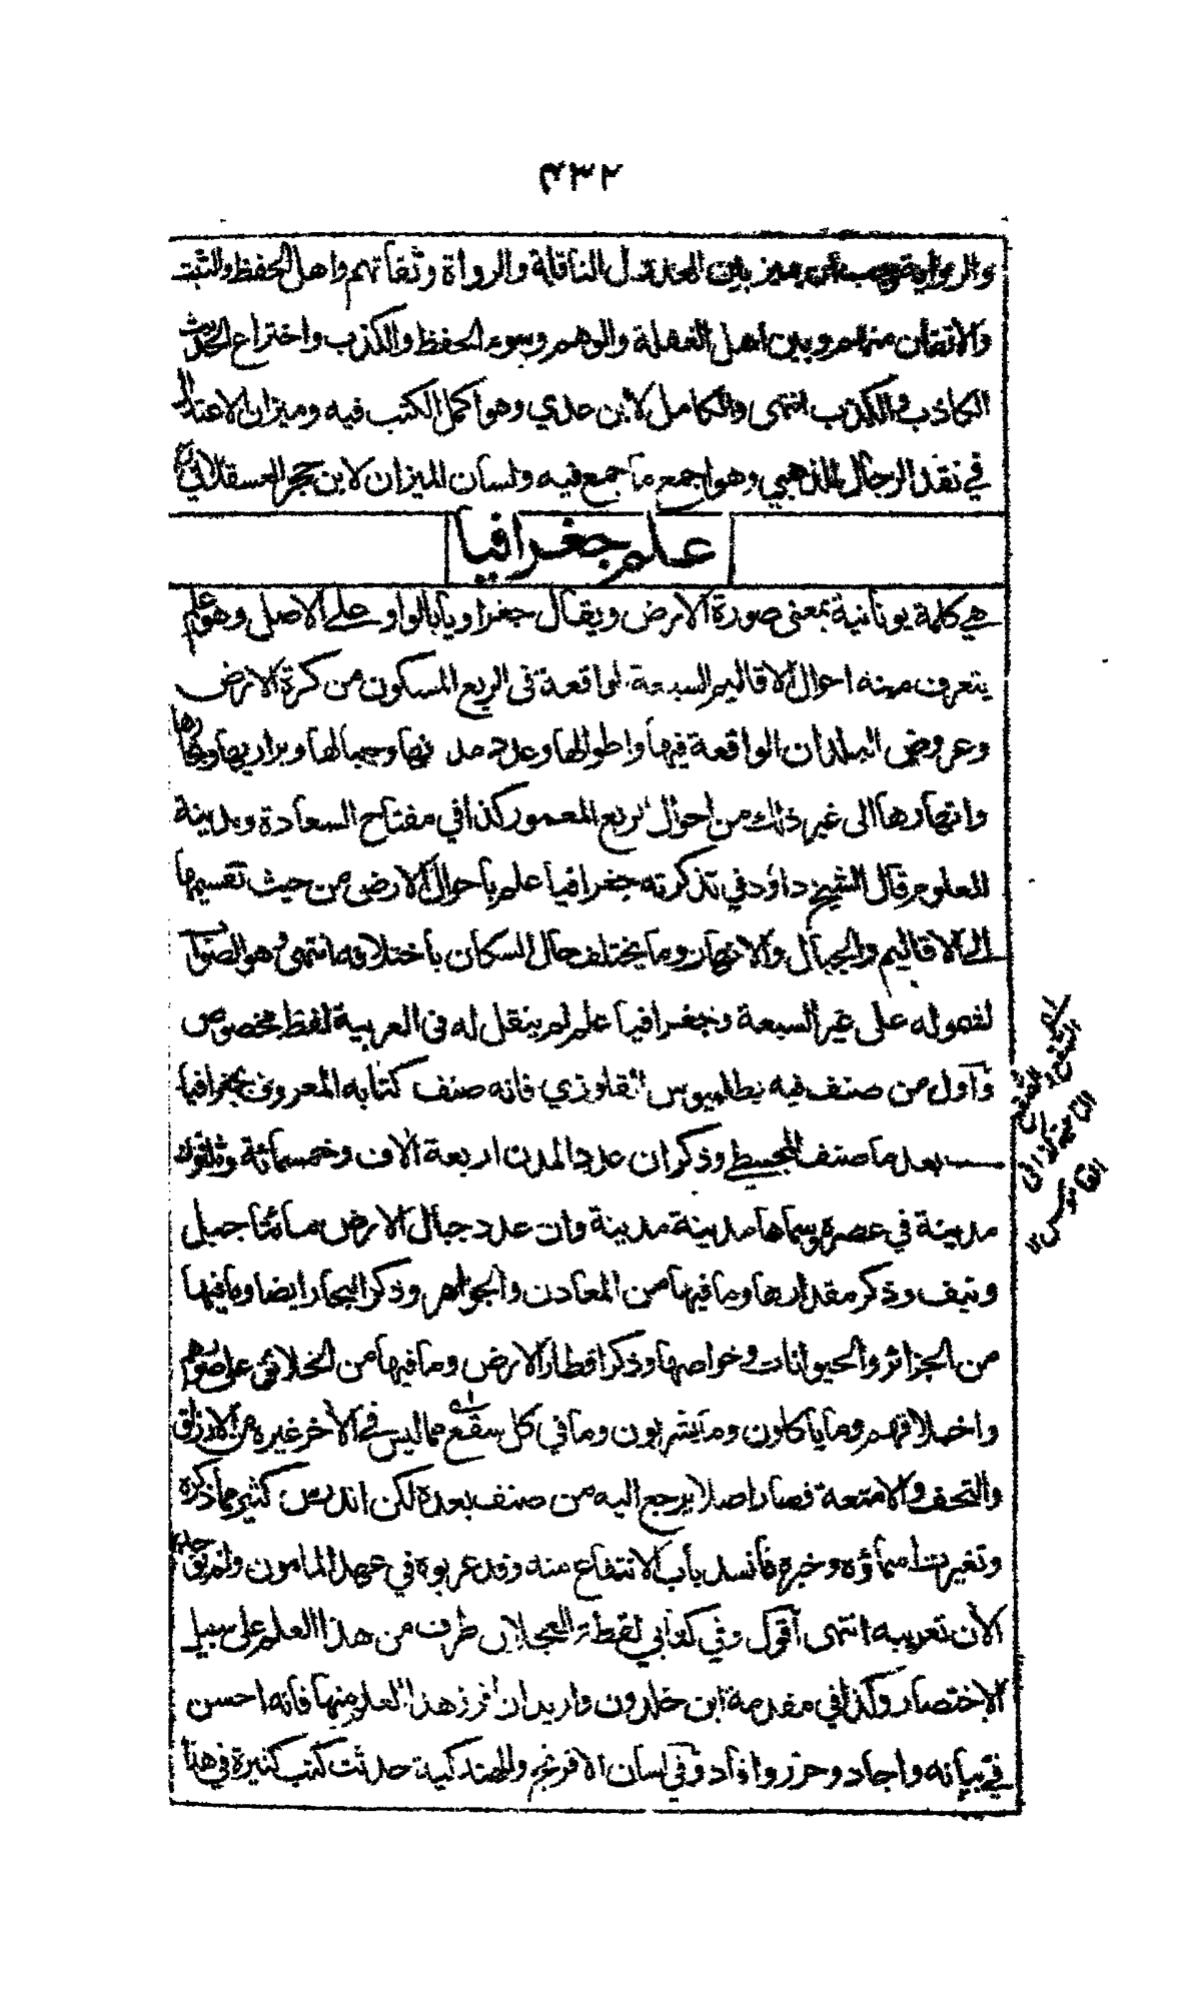 ٤٣٢
والرواية وجب أن يميز بين العدول الناقلة والرواة وثقاتهم واهل الحفظ والثبت
والاتقان منهم وبين اهل الغفلة والوهم وسوء الحفظ والكذب واختراع الحديث
الكاذب والكذب انتهى والكامل لابن عدي وهو اكمل الكتب فيه وميزان الاعتدال
في نقد الرجال للذهبي وهو اجمع ما جمع فيه ولسان الميزان لابن حجر العسقلاني
علم جغرافيا
هي كلمة يونانية بمعنى صورة الارض ويقال جغراويا بالواو على الاصل وهو علم
يتعرف منه احوال الاقاليم السبعة الواقعة فى الربع المسكون من كرة الارض
وعروض البلدان الواقعة فيها واطوالها وعدد مدنها وجبالها وبراريها وبحارها
وانهارها الى غير ذلك من احوال الربع المعمور كذا في مفتاح السعادة ومدينة
العلوم قال الشيخ داؤد في تذكرته جغرافيا علم باحوال الارض من حيث تقسيمها
الى الاقاليم والجبال والانهار وما يختلف حال السكان باختلافه انتهى وهو الصواب
لشموله على غير السبعة وجغرافيا علم لم ينقل له فى العربية لفظ مخصوص
واول من صنف فيه بطلميوس القلوزي فانه صنف كتابه المعروف بجغرافيا
بعد ما صنف المجسطي وذكر ان عدد المدن اربعة آلاف وخمسمائة وثلثون
مدينة في عصره وسماها مدينة مدينة وان عدد جبال الارض مائتا جبل
ونيف وذكر مقدارها وما فيها من المعادن والجواهر وذكر البحار ايضا وما فيها
من الجزائر والحيوانات وخواصها وذكر اقطار الارض وما فيها من الخلائق على صورهم
واخلاقهم وما ياكلون وما يشربون وما في كل سقع مما ليس في الآخر غيره من الارزاق
والتحف والامتعة فصار اصلا يرجع اليه من صنف بعده لكن اندرس كثير مما ذكره
وتغيرت اسماؤه وخبره فانسد باب الانتفاع منه وقد عربوه في عهد المامون ولم يوجد
الآن تعريبه انتهى أقول وفي كتابي لقطة العجلان طرف من هذا العلم على سبيل
الاختصار وكذا في مقدمة ابن خلدون واريد ان افرز هذا العلم منها فانه احسن
في بيانه واجاد وحرر وافاد وفي لسان الافرنج والهند كية حدثت كتب كثيرة في هذا